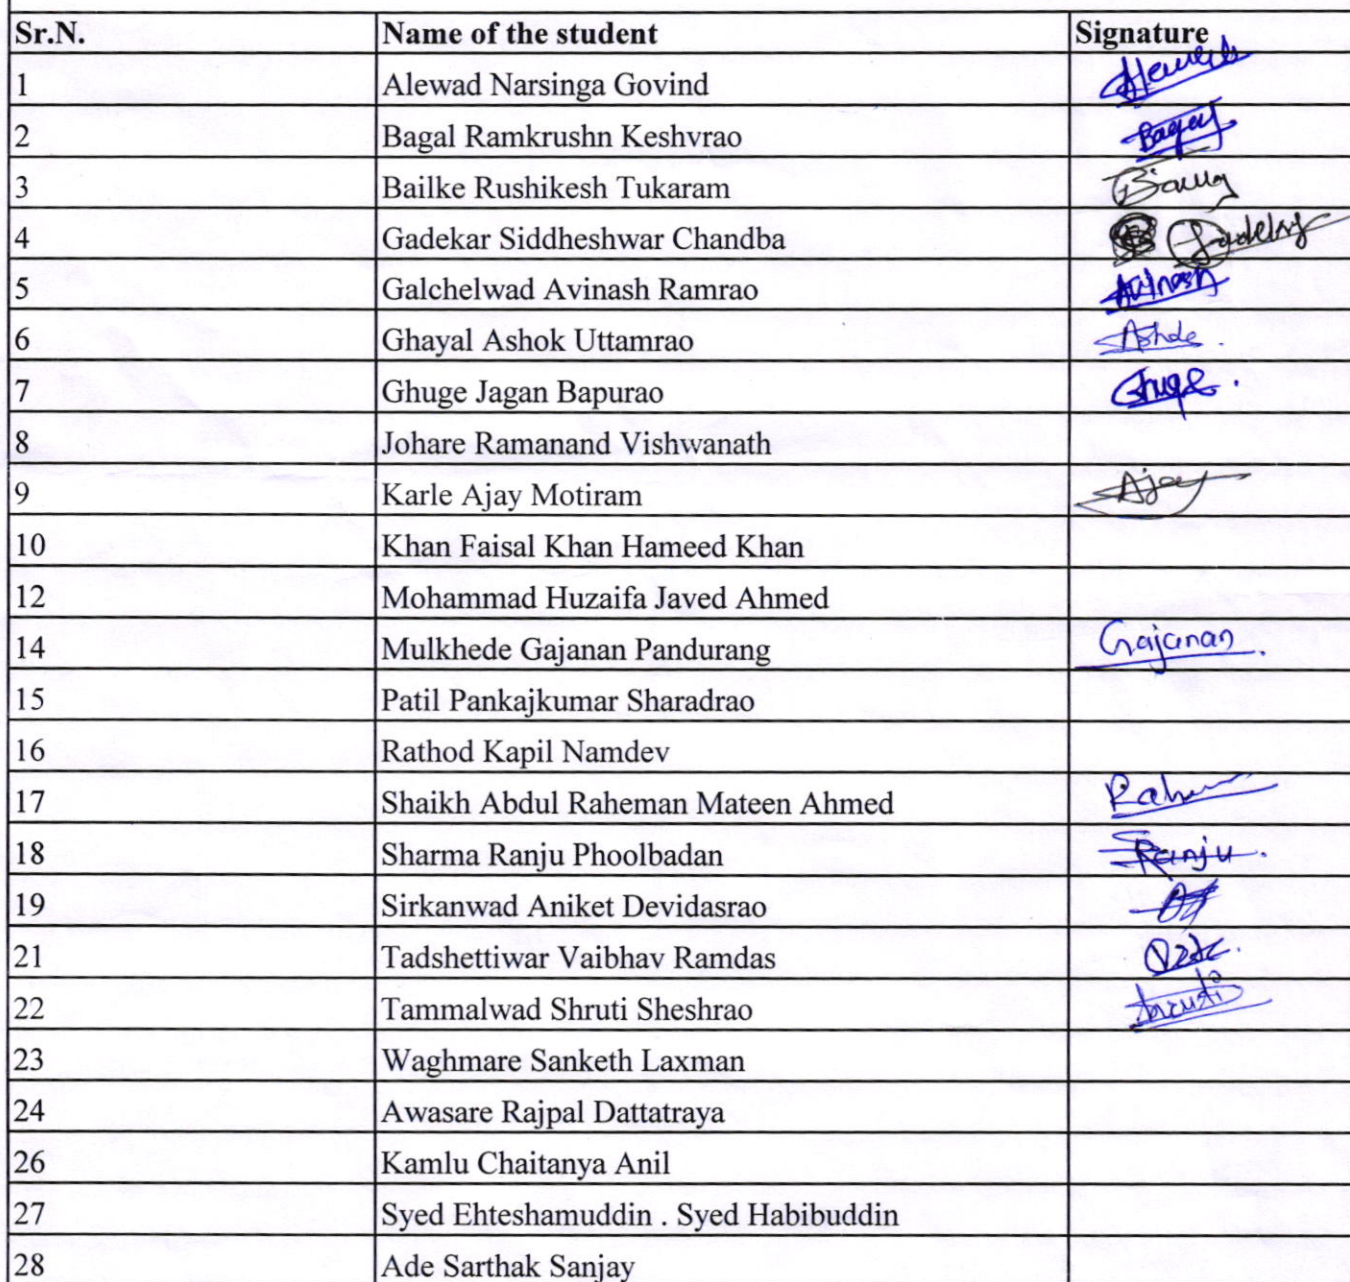 Sr.N. Name of the student Signature
1 Alewad Narsinga Govind
2 Bagal Ramkrushn Keshvrao Bagal
3 Bailke Rushikesh Tukaram
4 Gadekar Siddheshwar Chandba
5 Galchelwad Avinash Ramrao Avinash
6 Ghayal Ashok Uttamrao
7 Ghuge Jagan Bapurao Ghuge.
8 Johare Ramanand Vishwanath
9 Karle Ajay Motiram Ajay
10 Khan Faisal Khan Hameed Khan
12 Mohammad Huzaifa Javed Ahmed
14 Mulkhede Gajanan Pandurang Gajanan.
15 Patil Pankajkumar Sharadrao
16 Rathod Kapil Namdev
17 Shaikh Abdul Raheman Mateen Ahmed
18 Sharma Ranju Phoolbadan Ranju.
19 Sirkanwad Aniket Devidasrao
21 Tadshettiwar Vaibhav Ramdas
22 Tammalwad Shruti Sheshrao Shruti
23 Waghmare Sanketh Laxman
24 Awasare Rajpal Dattatraya
26 Kamlu Chaitanya Anil
27 Syed Ehteshamuddin . Syed Habibuddin
28 Ade Sarthak Sanjay